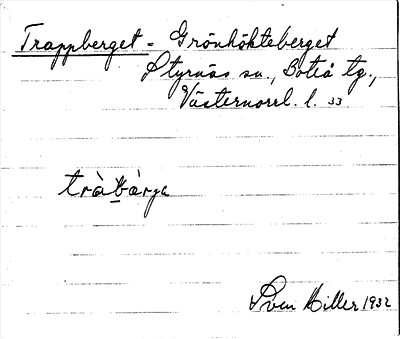 Trappberget = Grönhökteberget
Styrnäs sn., Boteå tg.,
Västernorrl. l. 33
tràbàrja
Sven Hiller 1932